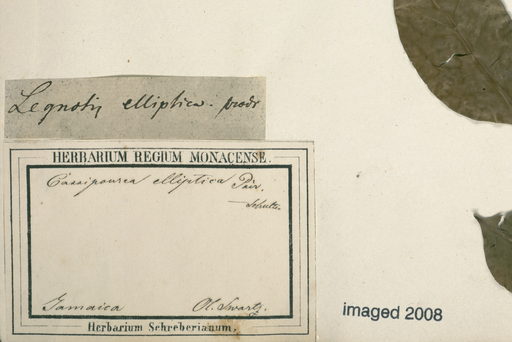 Legnotis elliptica. prodr
HERBARIUM REGIUM MONACENSE.
Cassipourea elliptica Poir.
Jamaica Ol. Swartz.
Herbarium Schreberianum.
imaged 2008